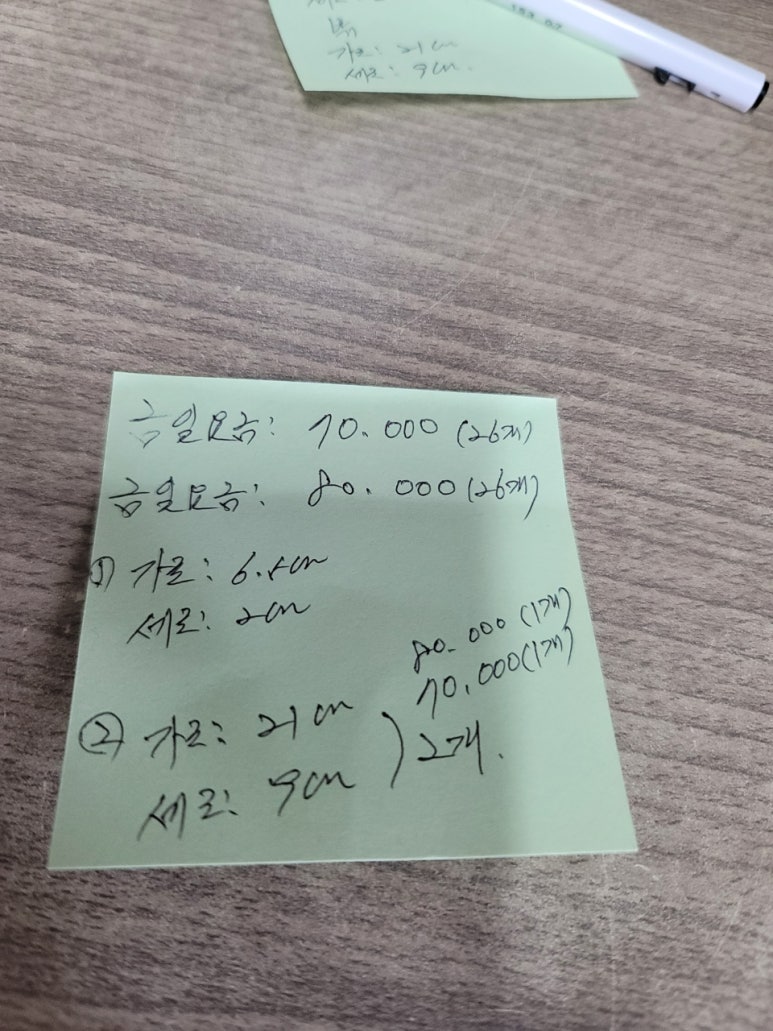 가로: 21cm
세로: 9cm.
금일요금: 70.000 (26개)
금일요금: 80.000 (26개)
① 가로: 6.5cm
세로: 2cm
80.000 (1개)
70.000 (1개)
② 가로: 21cm
세로: 9cm ) 2개.